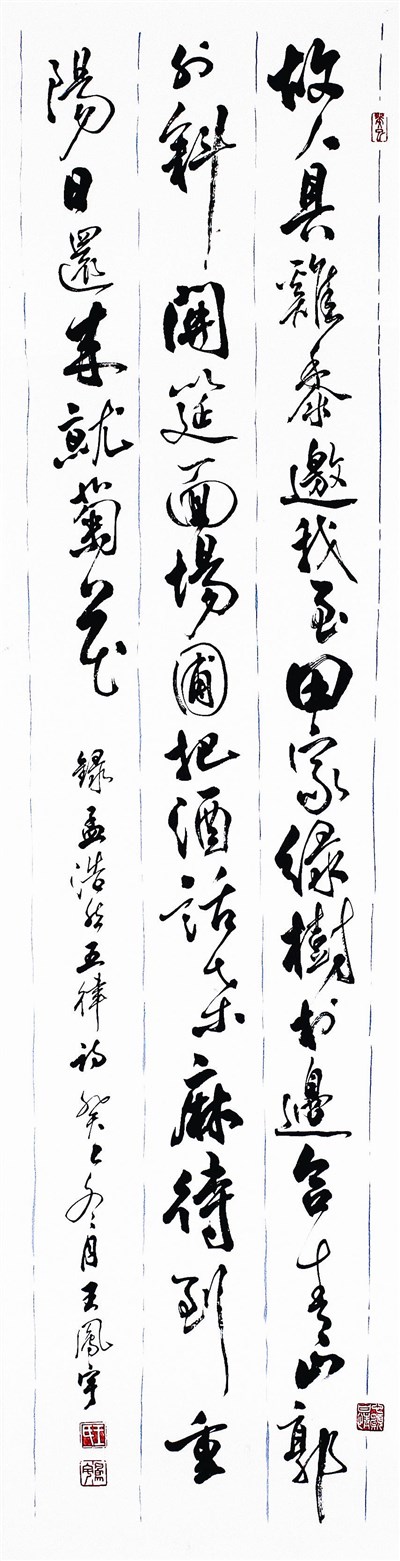 故人具雞黍邀我至田家綠樹村邊合青山郭
外斜開筵面場圃把酒話桑麻待到重
陽日還來就菊花
錄孟浩然五律詩癸巳冬月王鳳宇